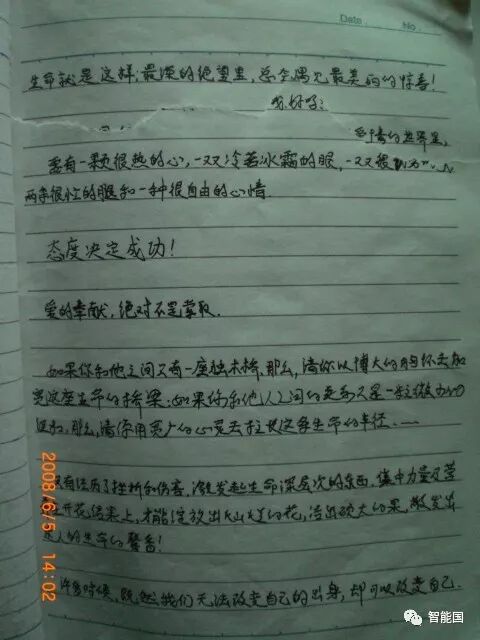 Date . No .
生命就是这样:最深的绝望里,总会遇见最美丽的惊喜!
你好吗?
的世界里,
要有一颗很热的心,一双冷若冰霜的眼,一双很
两条很忙的腿和一种很自由的心情.
态度决定成功!
爱的奉献,绝对不是索取.
如果你和他之间只有一座独木桥,那么,请你以博大的胸怀去加
宽这座生命的桥梁;如果你和他人之间的
那么,请你用宽广的心宽去拉长这条生命的半径.
有经历了挫折和伤害,激发起生命深层次的东西,集中力量
在开花结果上,才能绽放出 的花,结出硕大的果,散发出
人的生命的馨香!
许多时候,既然我们无法改变自己的出身,却可以改变自己.
2008/6/5 14:02
智能国